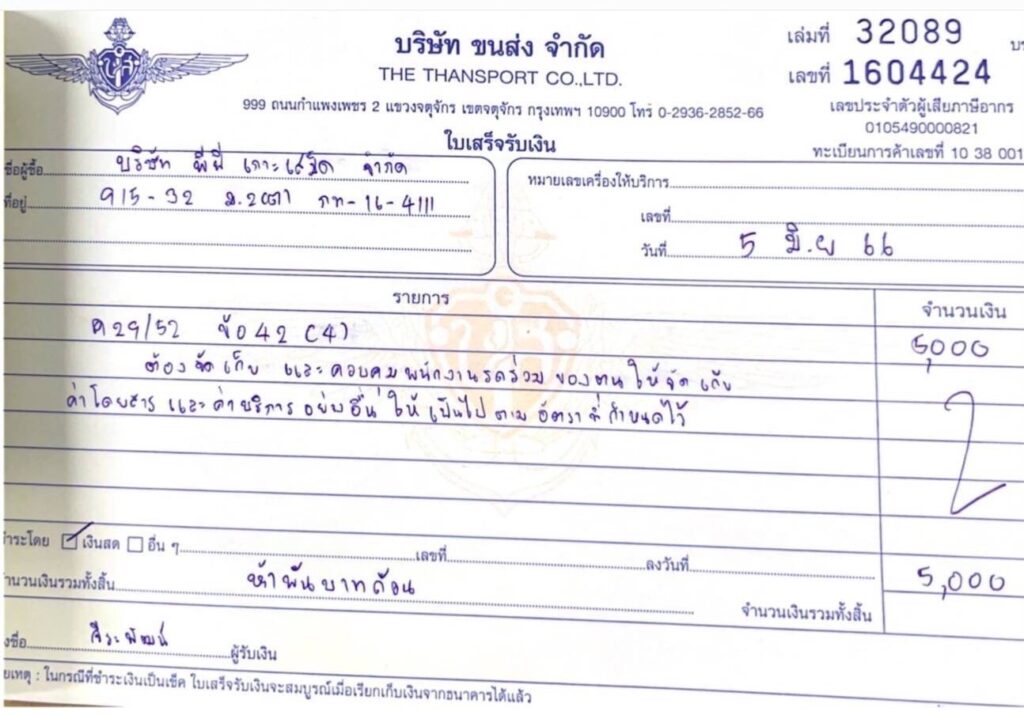 บริษัท ขนส่ง จำกัด
THE THANSPORT CO.,LTD.
999 ถนนกำแพงเพชร 2 แขวงจตุจักร เขตจตุจักร กรุงเทพฯ 10900 โทร 0-2936-2852-66
เล่มที่ 32089
เลขที่ 1604424
เลขประจำตัวผู้เสียภาษีอากร
0105490000821
ทะเบียนการค้าเลขที่ 10 38 001
ใบเสร็จรับเงิน
ชื่อผู้ซื้อ บริษัท พีพี เกาะเสม็ด จำกัด
ที่อยู่ 915-32 กท-16-4111
หมายเลขเครื่องให้บริการ
เลขที่
วันที่ 5 มิ.ย 66
รายการ จำนวนเงิน
ค 29/52 ข้อ 42 (4) 5,000
ต้องจัดเก็บ และควบคุมพนักงานรถร่วมของตนให้จัดเก็บ
ค่าโดยสาร และค่าบริการอย่างอื่นให้เป็นไปตามอัตราที่กำหนดไว้
ชำระโดย เงินสด อื่น ๆ เลขที่ ลงวันที่
จำนวนเงินรวมทั้งสิ้น ห้าพันบาทถ้วน จำนวนเงินรวมทั้งสิ้น 5,000
ลงชื่อ จีระพัฒน์ ผู้รับเงิน
หมายเหตุ : ในกรณีที่ชำระเงินเป็นเช็ค ใบเสร็จรับเงินจะสมบูรณ์เมื่อเรียกเก็บเงินจากธนาคารได้แล้ว